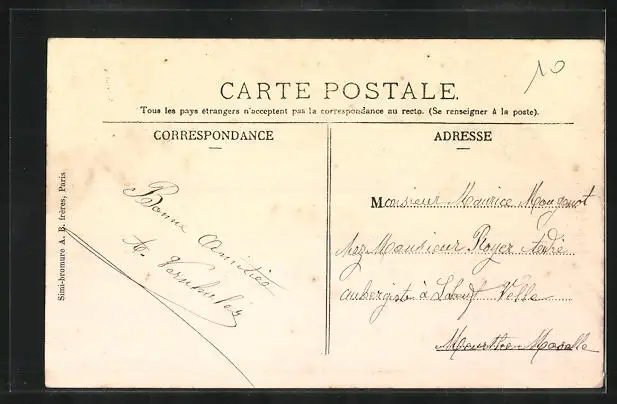 10
CARTE POSTALE.
Tous les pays étrangers n'acceptent pas la correspondance au recto. (Se renseigner à la poste).
CORRESPONDANCE
ADRESSE
Simi-bromure A. B. frères, Paris
Bonne amitiée
A.
Monsieur Maurice Mougenot
chez Monsieur Royer
aubergiste à
Meurthe Moselle